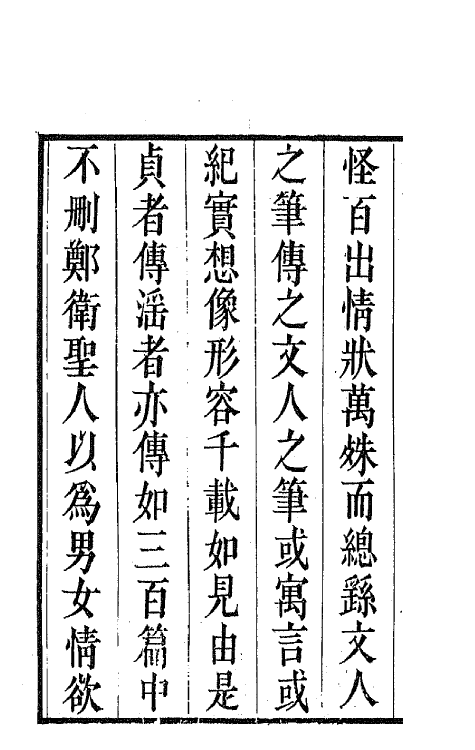 怪百出情狀萬殊而總繇文人
之筆傳之文人之筆或寓言或
紀實想像形容千載如見由是
貞者傳滛者亦傳如三百篇中
不刪鄭衛聖人以爲男女情欲